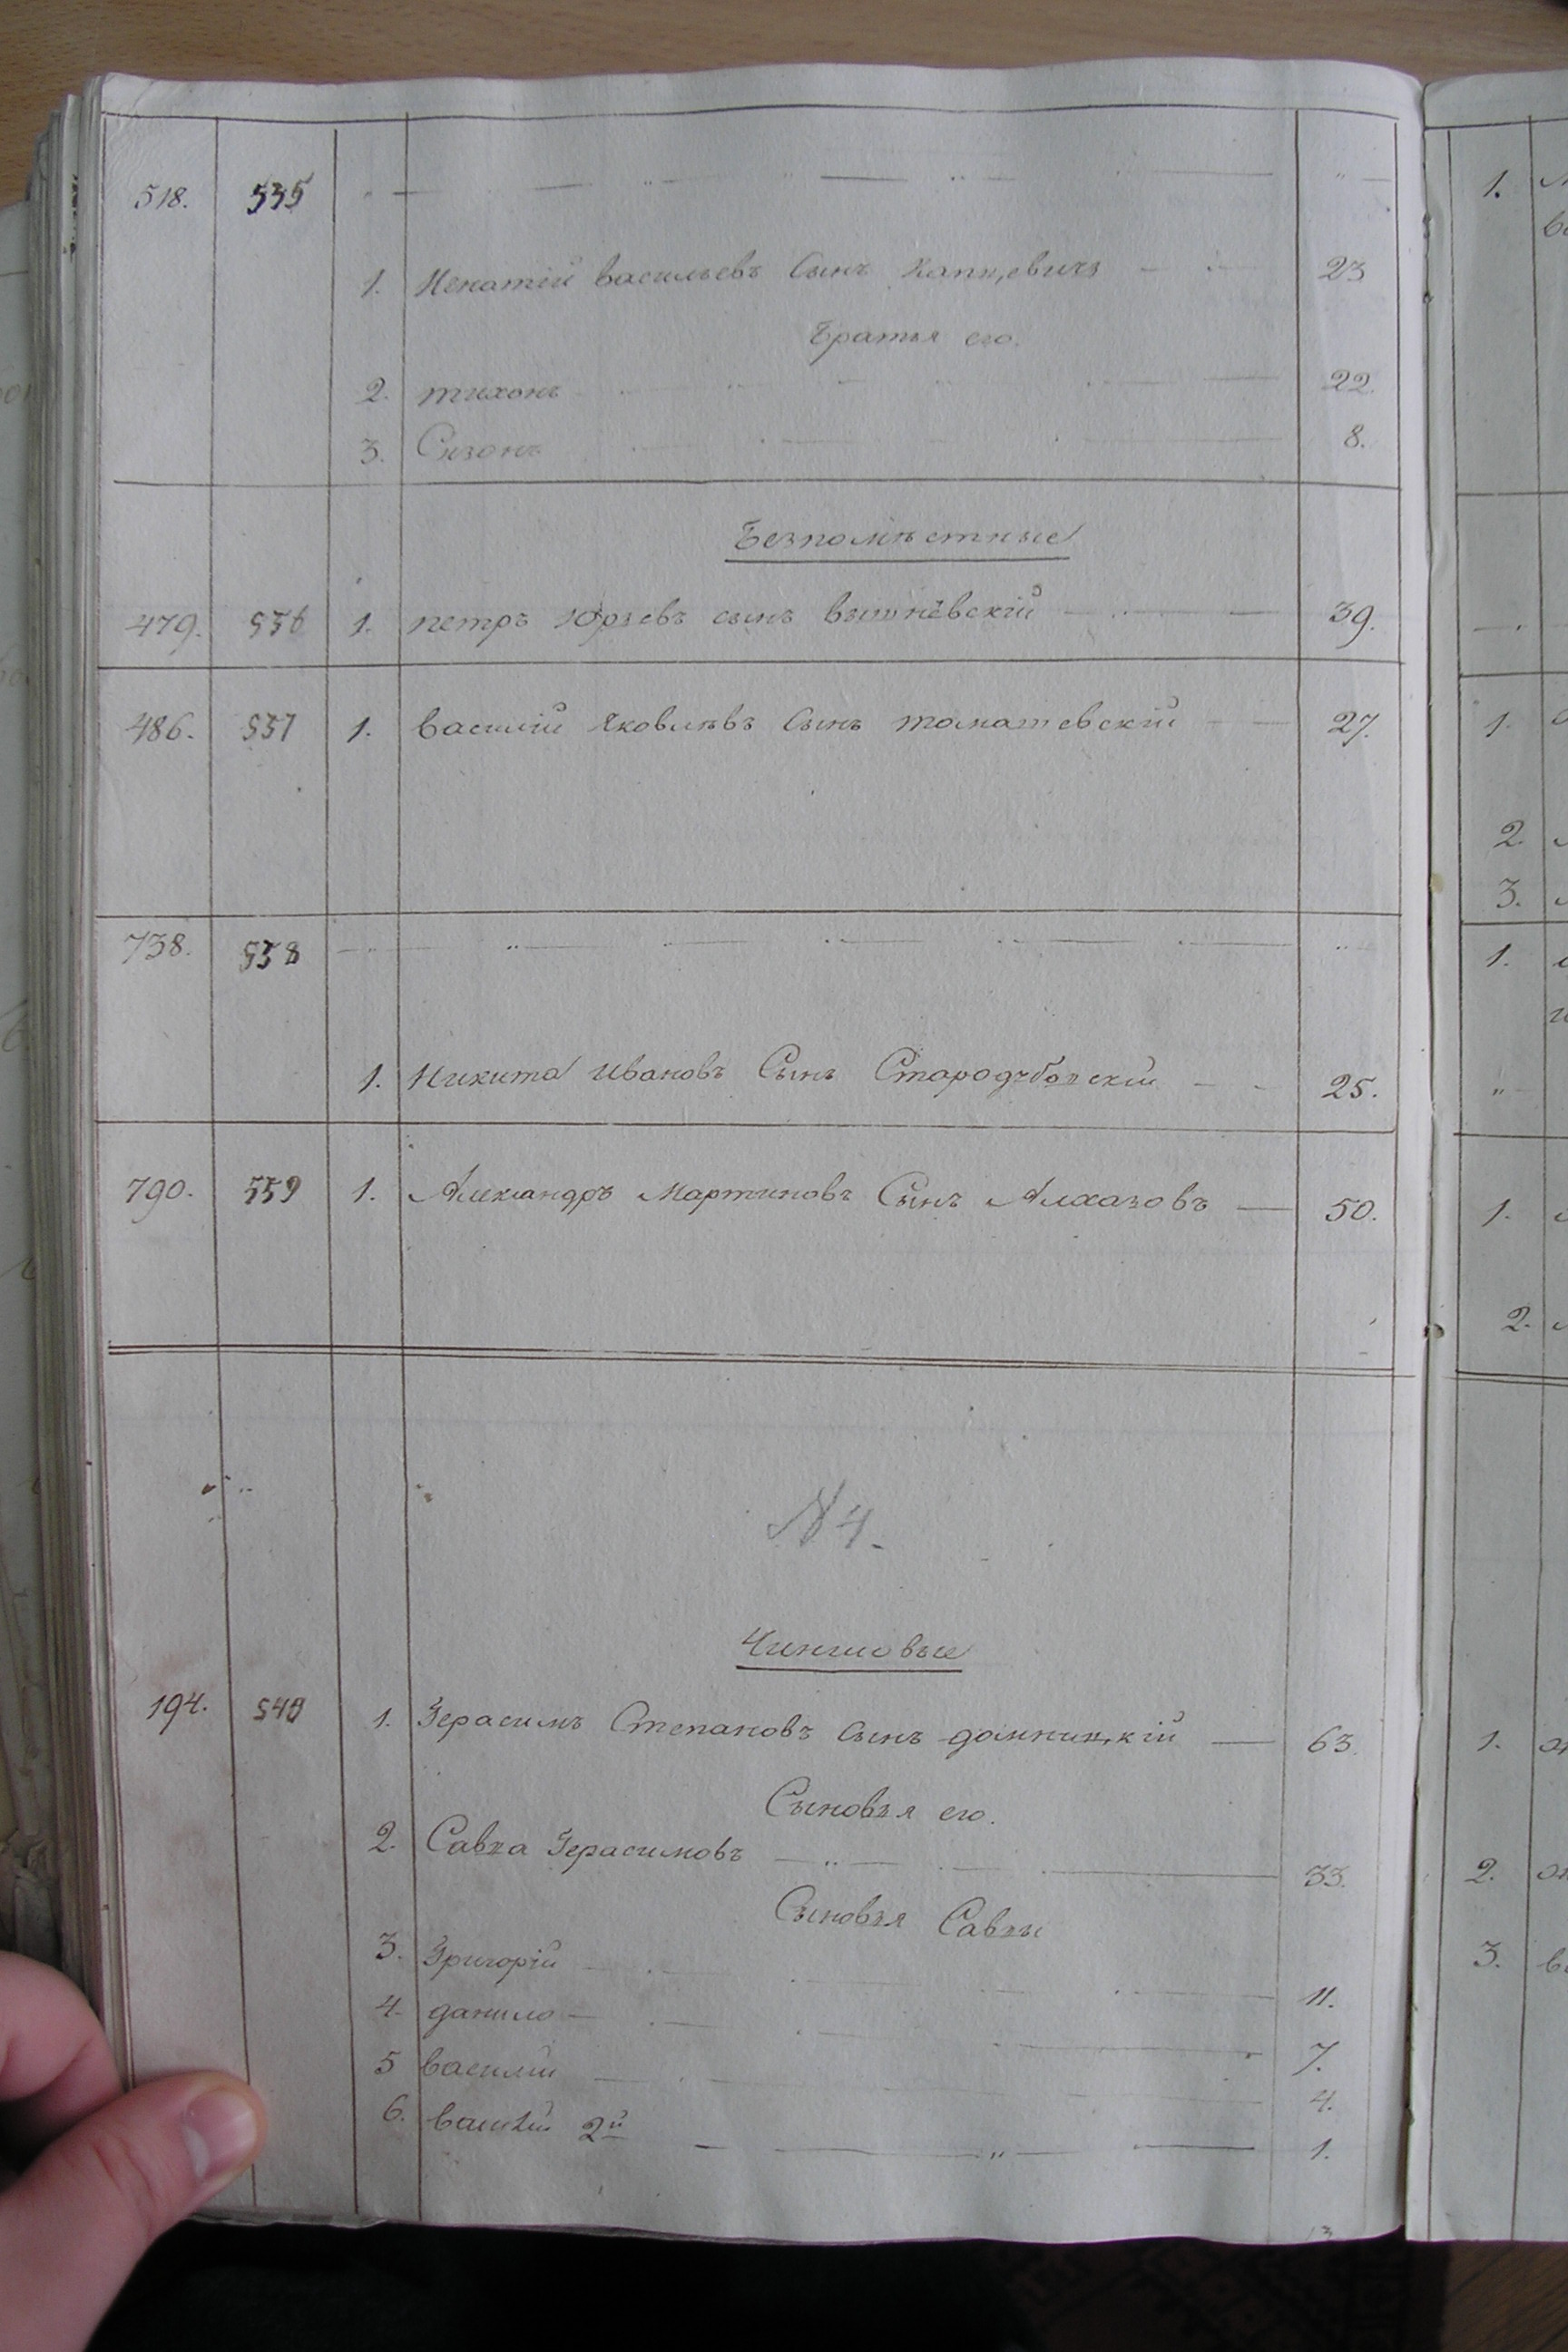 518. 535 " — " — " — " — " —
1. Игнатий васильевъ Сынъ Капцевичъ — 23
Братья его.
2. тихонъ — 22.
3. Сизонъ — 8.
Безпомѣстные
479. 536 1. петръ Юрьевъ сынъ вишневский — 39.
486. 537 1. василий Яковлѣвъ Сынъ томашевский — 27.
738. 538 — " — " — " — " —
1. Никита Ивановъ Сынъ Стародубовский — 25.
790. 539 1. Александръ Мартиновъ Сынъ Алхазовъ — 50.
N 4.
Чиншовые
194. 540 1. Герасимъ Степановъ Сынъ домницкій — 63.
Сыновья его.
2. Савка Герасимовъ — 33.
Сыновья Савки
3. Григорій — 11.
4. данило — 7.
5 василій — 4.
6. василій 2й — 1.
1.
1.
2.
3.
1.
"
1.
2.
1.
2.
3.